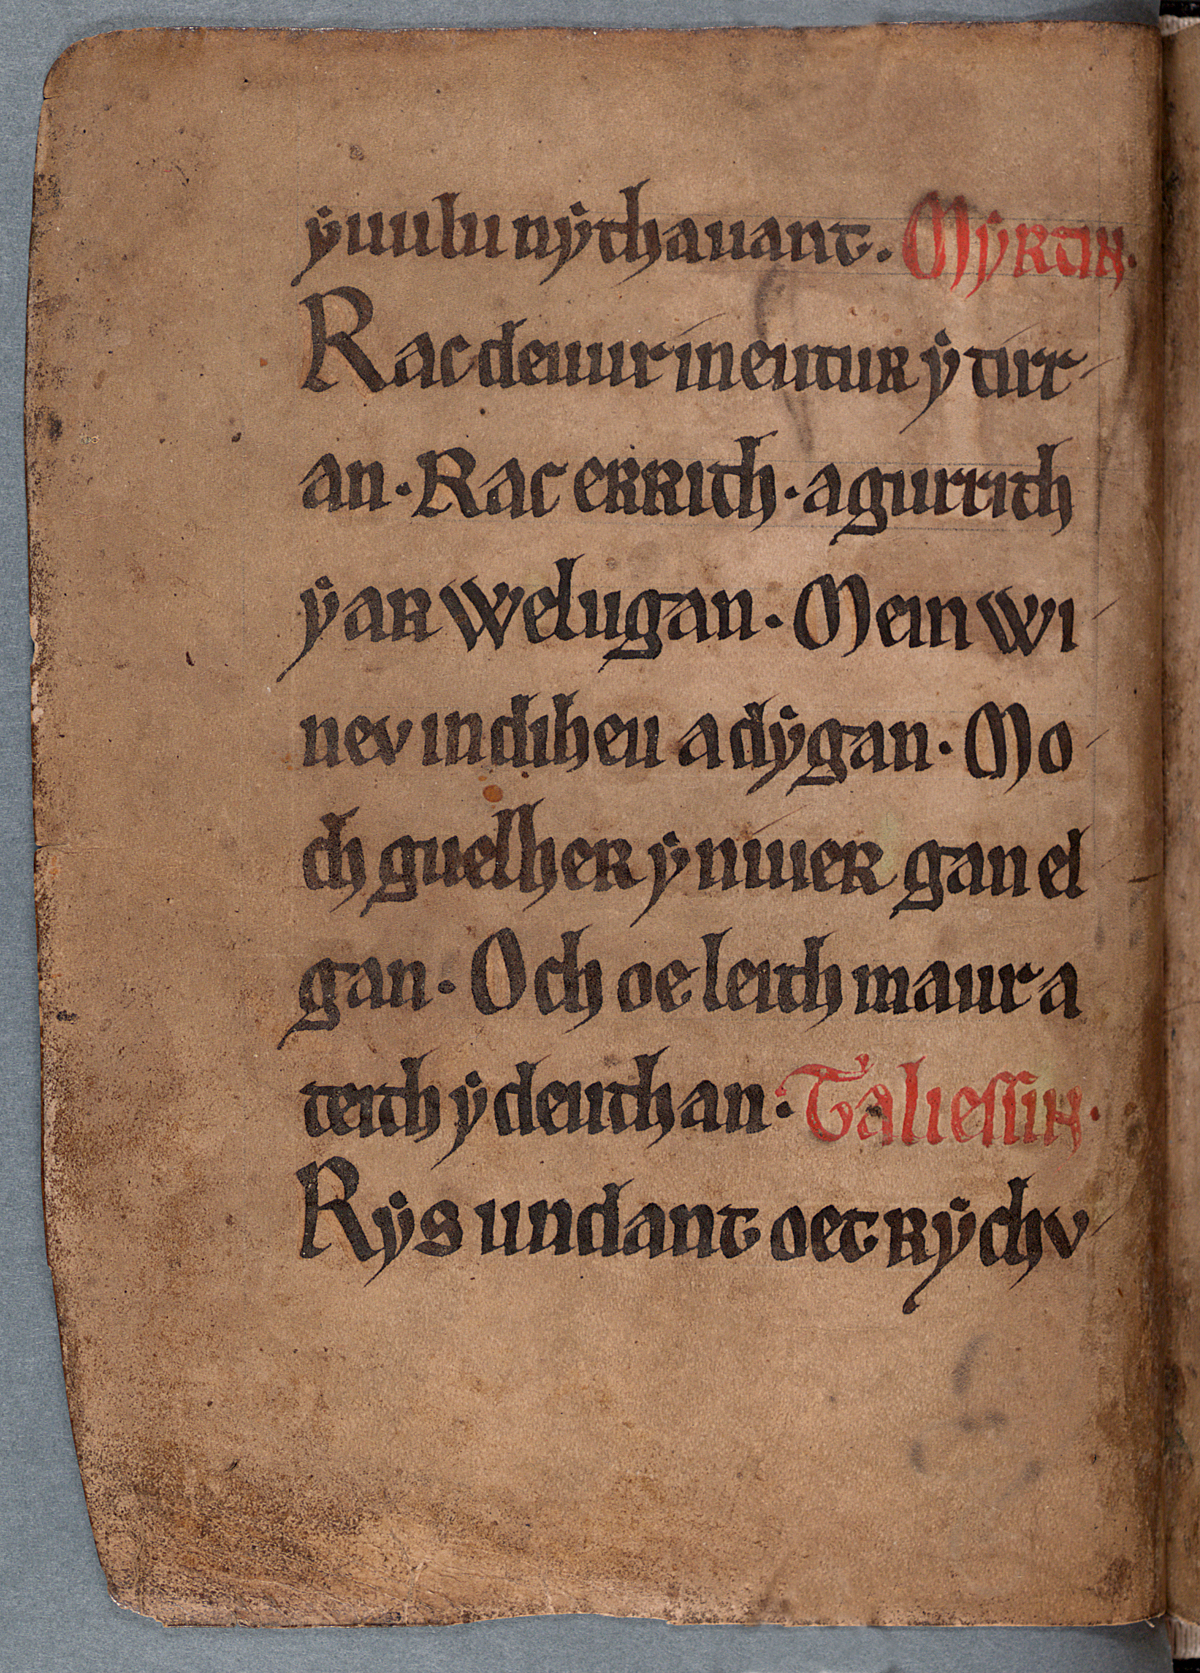 ẏuulu nẏthauant. Mẏrtin.
Rac deuur ineutur ẏ tirr
an. Rac errith. a gurrith
ẏ ar welugan. Mein wi
nev in diheu a dẏgan. Mo
ch guelher ẏ niuer gan el
gan. Och oe leith maur a
teith ẏ deuthan. Talieſſin.
Rẏs undant oet rẏchv